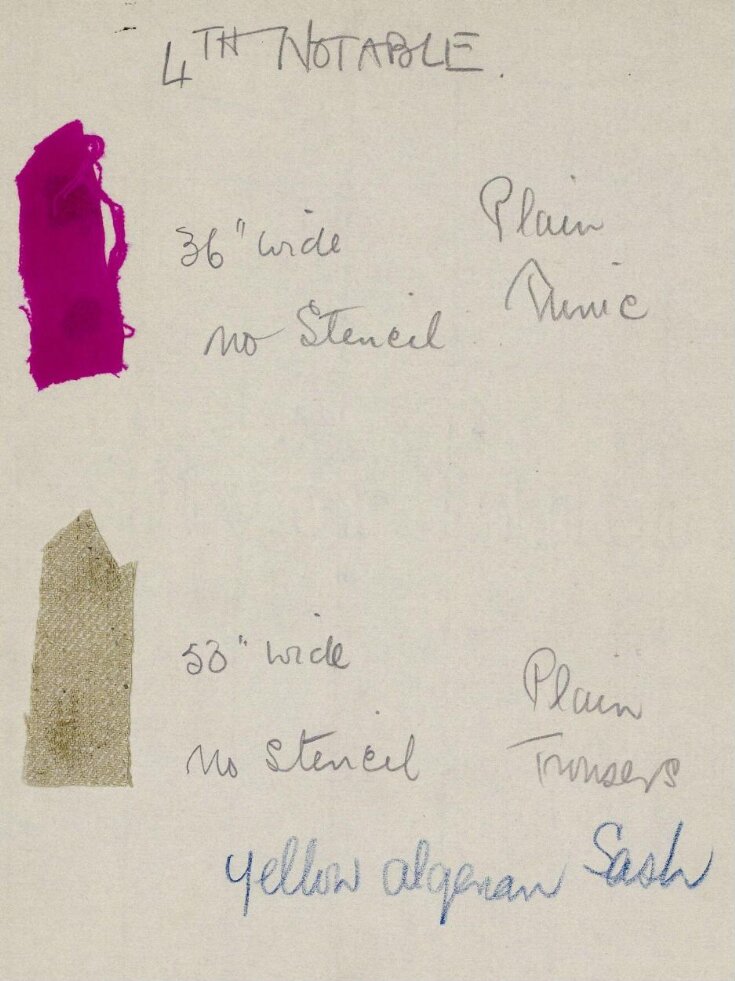 4TH NOTABLE.
36" wide
Plain
Tunic
no Stencil
53" wide
Plain
no Stencil
Trousers
yellow algerian Sash